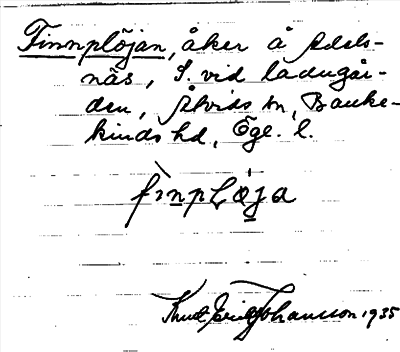 Finnplöjan, åker å Adels-
näs, S. vid ladugår-
den, Åtvids sn, Banke-
kinds hd, Ögl. l.
fìnpLǿja
Knut Erik Johansson 1935